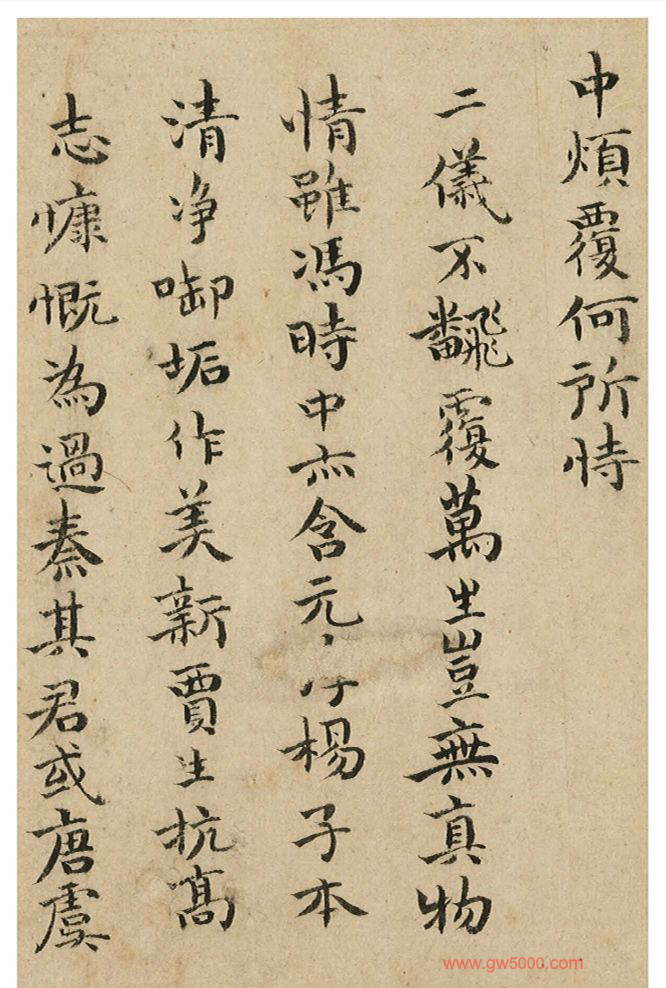 中煩覆何所恃
二儀不飜覆萬生豈無真物
情雖馮時中亦含元楊子本
清净啣垢作美新賈生抗高
志慷慨為過秦其君或唐虞
www.gw5000.com